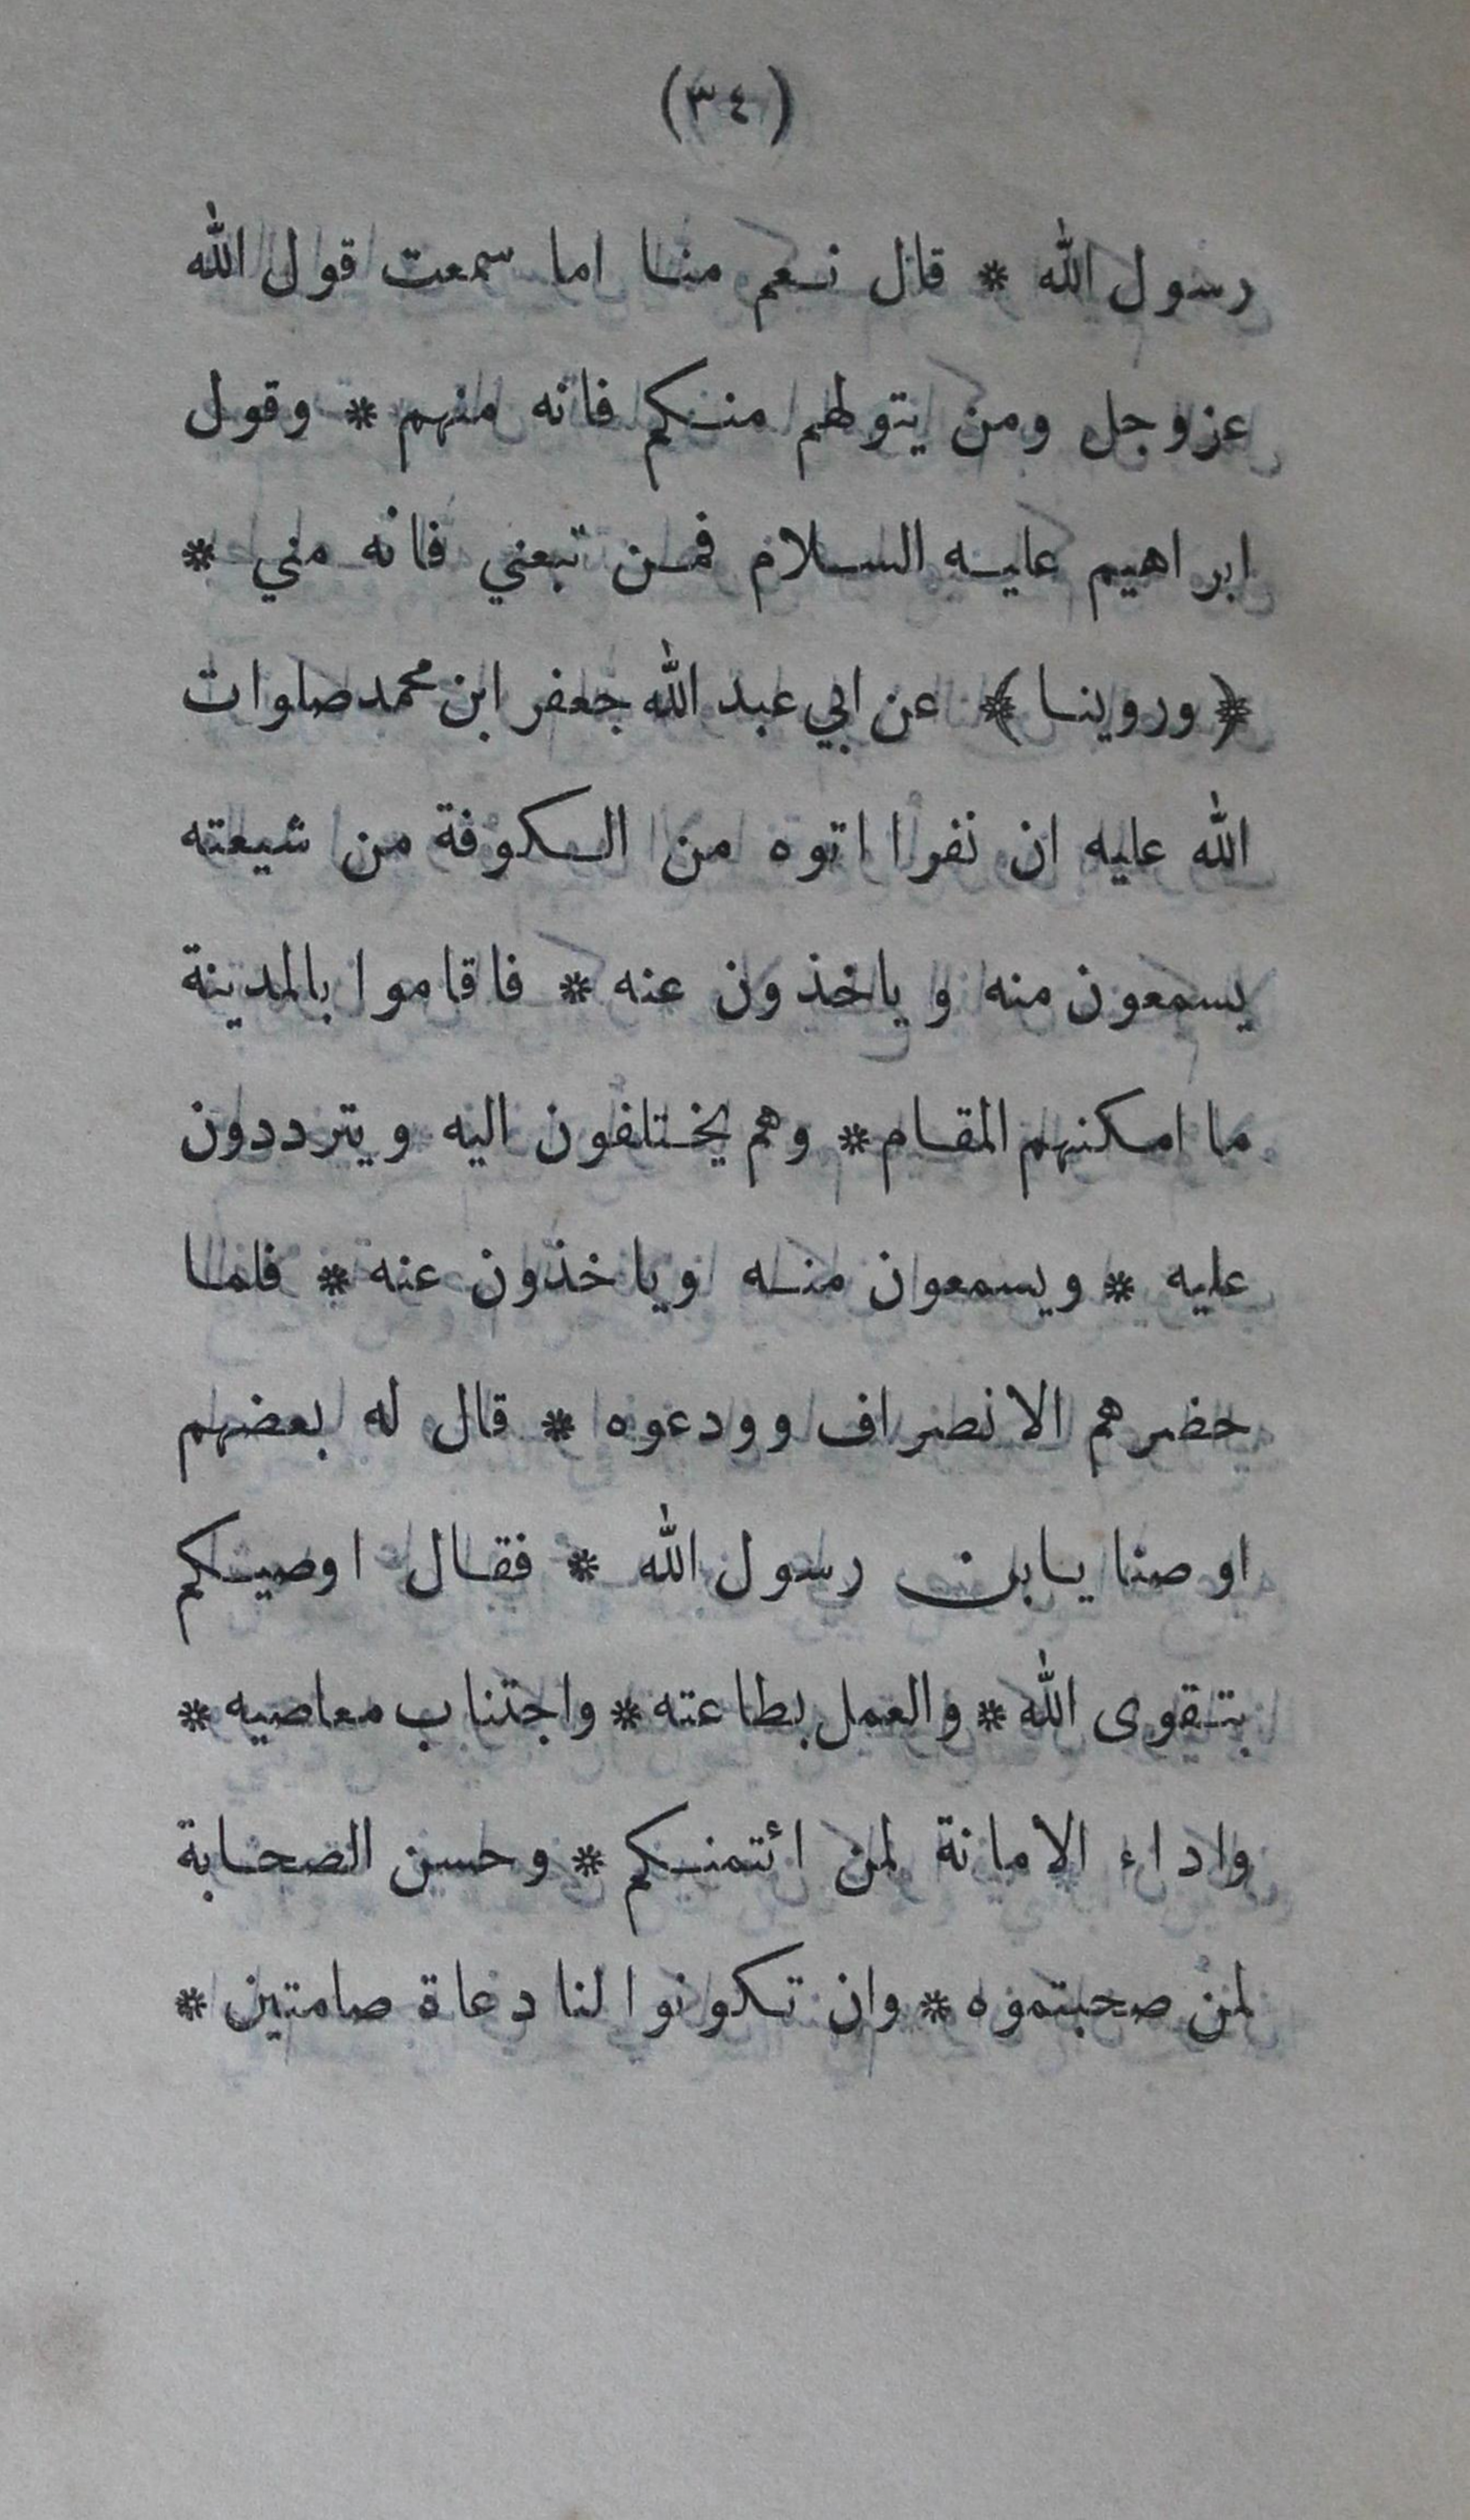 (٣٤)
رسول الله * قال نعم منا اما سمعت قول الله
عز وجل ومن يتولهم منكم فانه منهم * وقول
ابراهيم عليه السلام فمن تبعني فانه مني *
﴿ وروينا ﴾ عن ابي عبد الله جعفر ابن محمد صلوات
الله عليه ان نفرا اتوه من الكوفة من شيعته
يسمعون منه وياخذون عنه * فاقاموا بالمدينة
ما امكنهم المقام * وهم يختلفون اليه ويترددون
عليه * ويسمعون منه وياخذون عنه * فلما
حضرهم الانصراف وودعوه * قال له بعضهم
اوصنا يابن رسول الله * فقال اوصيكم
بتقوى الله * والعمل بطاعته * واجتناب معاصيه *
واداء الامانة لمن ائتمنكم * وحسن الصحابة
لمن صحبتموه * وان تكونوا لنا دعاة صامتين *